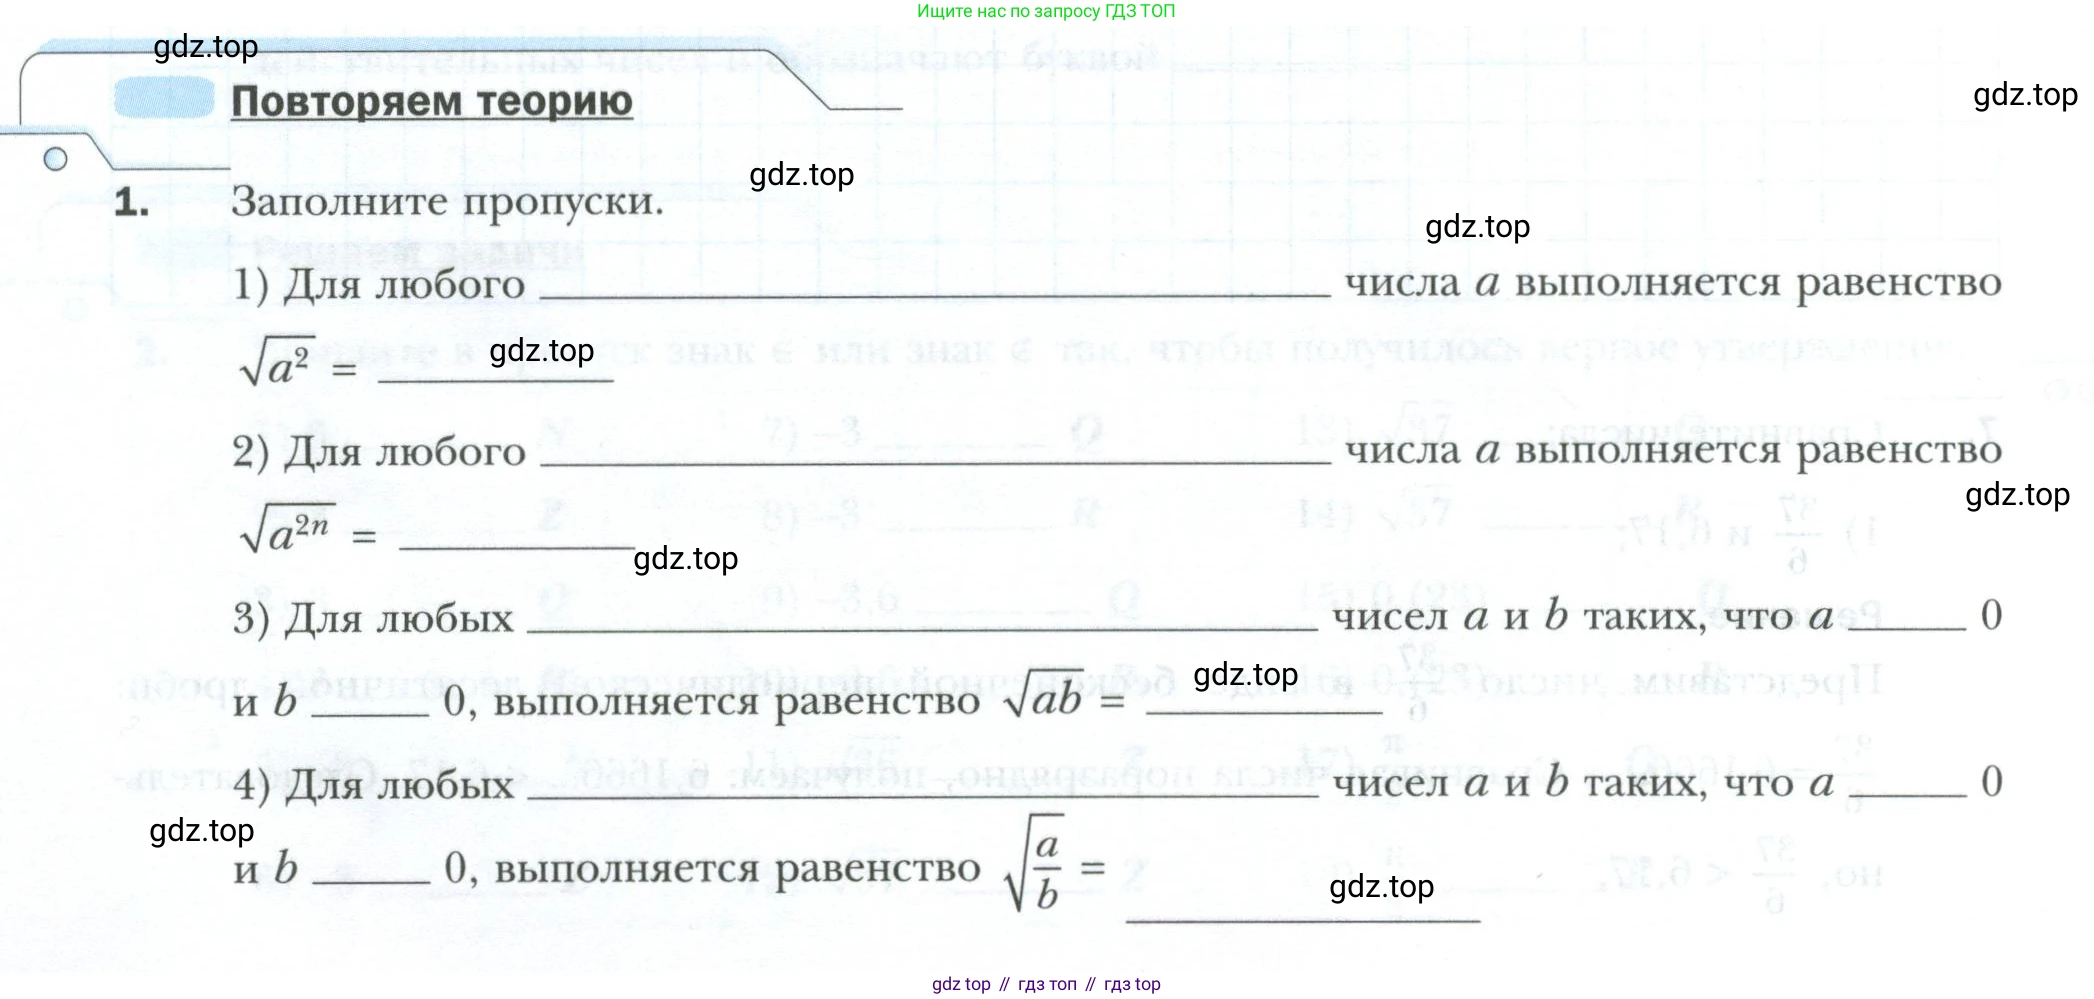 Ищите нас по запросу ГДЗ ТОП
gdz.top
Повторяем теорию
gdz.top
gdz.top
1. Заполните пропуски.
gdz.top
1) Для любого ________ числа a выполняется равенство
√a² = ________ gdz.top
2) Для любого ________ числа a выполняется равенство
gdz.top
√a²ⁿ = ________ gdz.top
3) Для любых ________ чисел a и b таких, что a ____ 0
gdz.top
и b ____ 0, выполняется равенство √ab = ________
4) Для любых ________ чисел a и b таких, что a ____ 0
gdz.top
и b ____ 0, выполняется равенство √(a/b) = ________
gdz.top
gdz top // гдз топ // гдз top